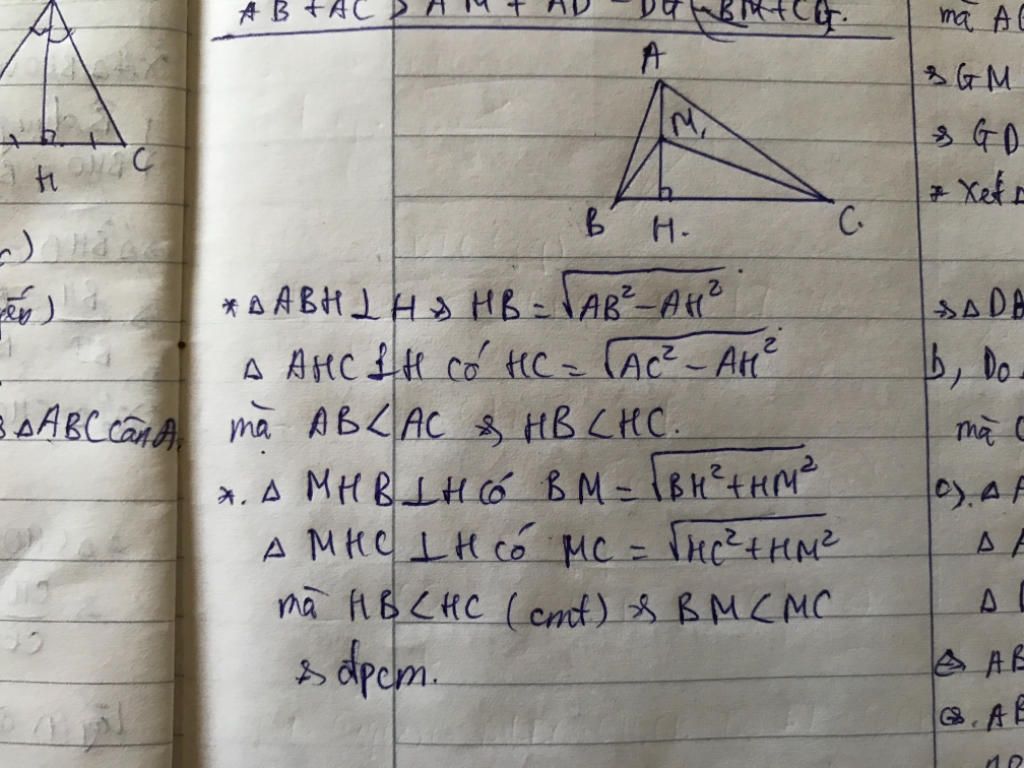 AB + AC > AM + AD - DG BM + CG.
A
M,
B H. C.
* Δ ABH ⊥ H => HB = √AB² - AH²
Δ AHC ⊥ H có HC = √AC² - AH²
mà AB < AC => HB < HC.
*. Δ MHB ⊥ H có BM = √BH² + HM²
Δ MHC ⊥ H có MC = √HC² + HM²
mà HB < HC (cmt) => BM < MC
=> đpcm.
H C
=> Δ ABC cân A.
mà
=> GM
=> GD
* Xét Δ
=> Δ
b, Do
mà
c). Δ
Δ
Δ
AB
AB